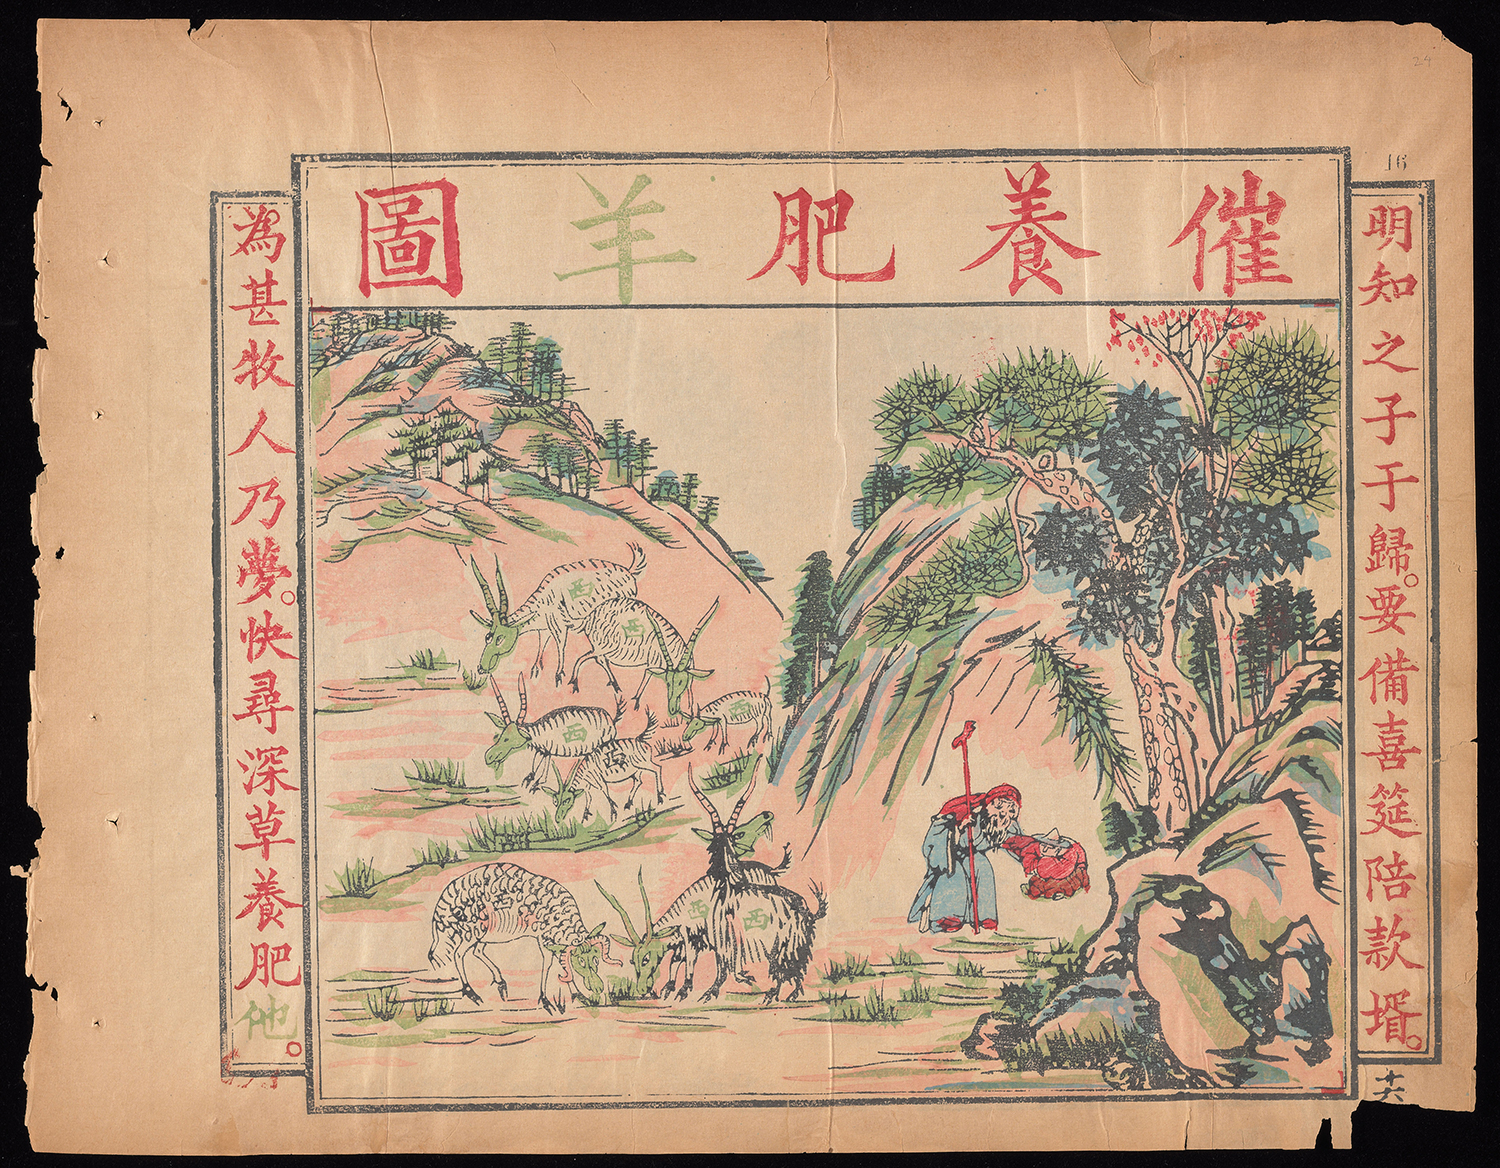 24
16
催養肥羊圖
明知之子于歸。要備喜筵陪款壻。
十六
為甚牧人乃夢。快尋深草養肥他。
西
西
西
西
西
西
西